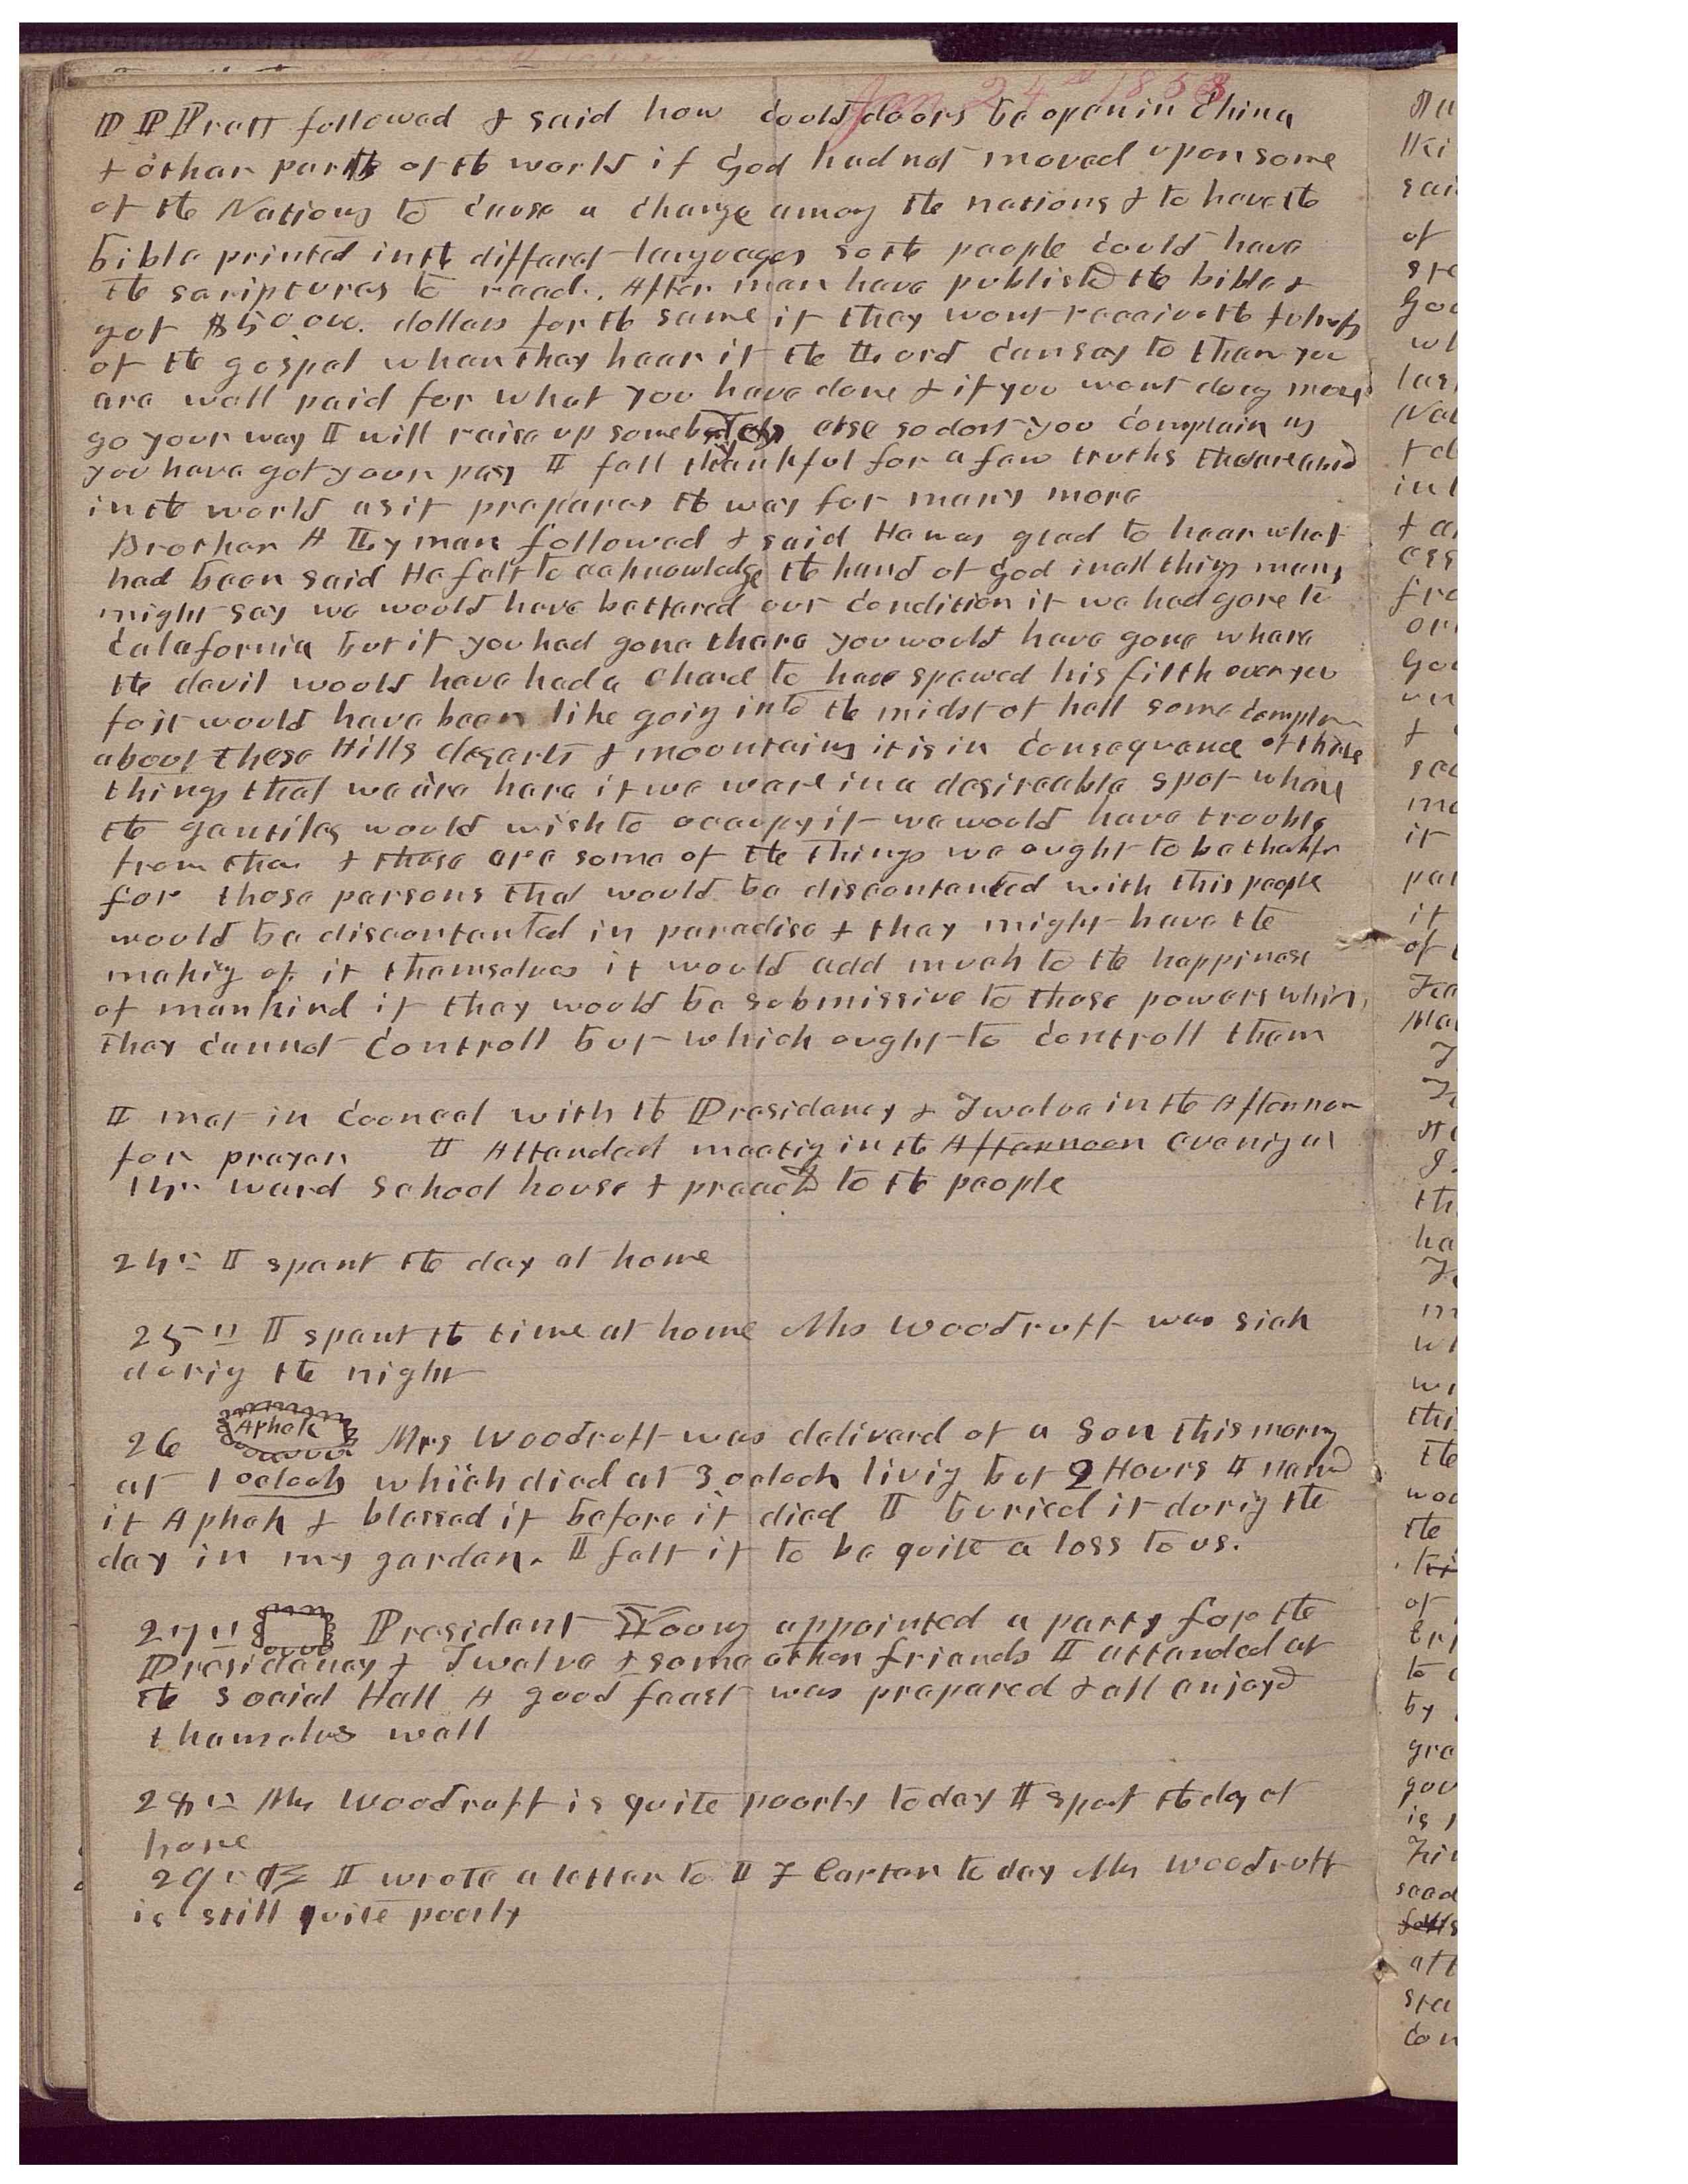 Jan 24th 1853
P P Pratt followed & said how could doors be open in China
& other parts of the world if God had not moved upon some
of the Nations to cause a change among the nations & to have the
bible printed in the different languages so the people could have
the scriptures to read. After men have published the bible &
got $50000. dollars for the same if they wont receive the fulness
of the gospel when they hear it the Lord can say to them you
are well paid for what you have done & if you wont doey more
go your way I will raise up somebody else so dont you complain as
you have got your pay I fell thankful for a few truths that are
in the world as it prepares the way for many more
Brother A Lyman followed & said He was glad to hear what
had been said He felt to acknowledge the hand of God in all things many
might say we would have bettered our condition if we had gone to
Calafornia but if you had gone there you would have gone where
the devil would have had a chance to have spewed his filth over you
fo it would have been like going into the midst of hell some complain
about these Hills desarts & moountains it is in consequence of these
things that we are here if we were in a desireable spot whare
the gentiles would wish to occupy it we would have trouble
from them & these are some of the things we ought to be thankful
for those persons that would be discontented with this people
would be discontented in paradise & they might have the
making of it themselves it would add much to the happiness
of mankind if they would be submissive to those powers which
they cannot controll but which ought to controll them
I met in Cooncel with the Presidency & Twelve in the Afternoon
for prayer I Attended meeting in the Afternoon evening at
14th ward School house & preached to the people
24th I spent the day at home
25th I spent the time at home Mrs Woodruff was sick
during the night
26 Aphek Mrs Woodruff was deliverd of a Son this morning
at 1 oclock which died at 3 oclock living but 2 Hours I named
it Aphek & blessed it before it died I buried it during the
day in my garden. I felt it to be quite a loss to us.
27th President Young appointed a party for the
Presidency & Twelve & some other friends I attended at
the Social Hall A good feast was prepared & all enjoyed
themselves well
28th Mrs Woodruff is quite poorly to day I spent the day at
home
29th I wrote a letter to I F Carter to day Mrs Woodruff
is still quite poorly